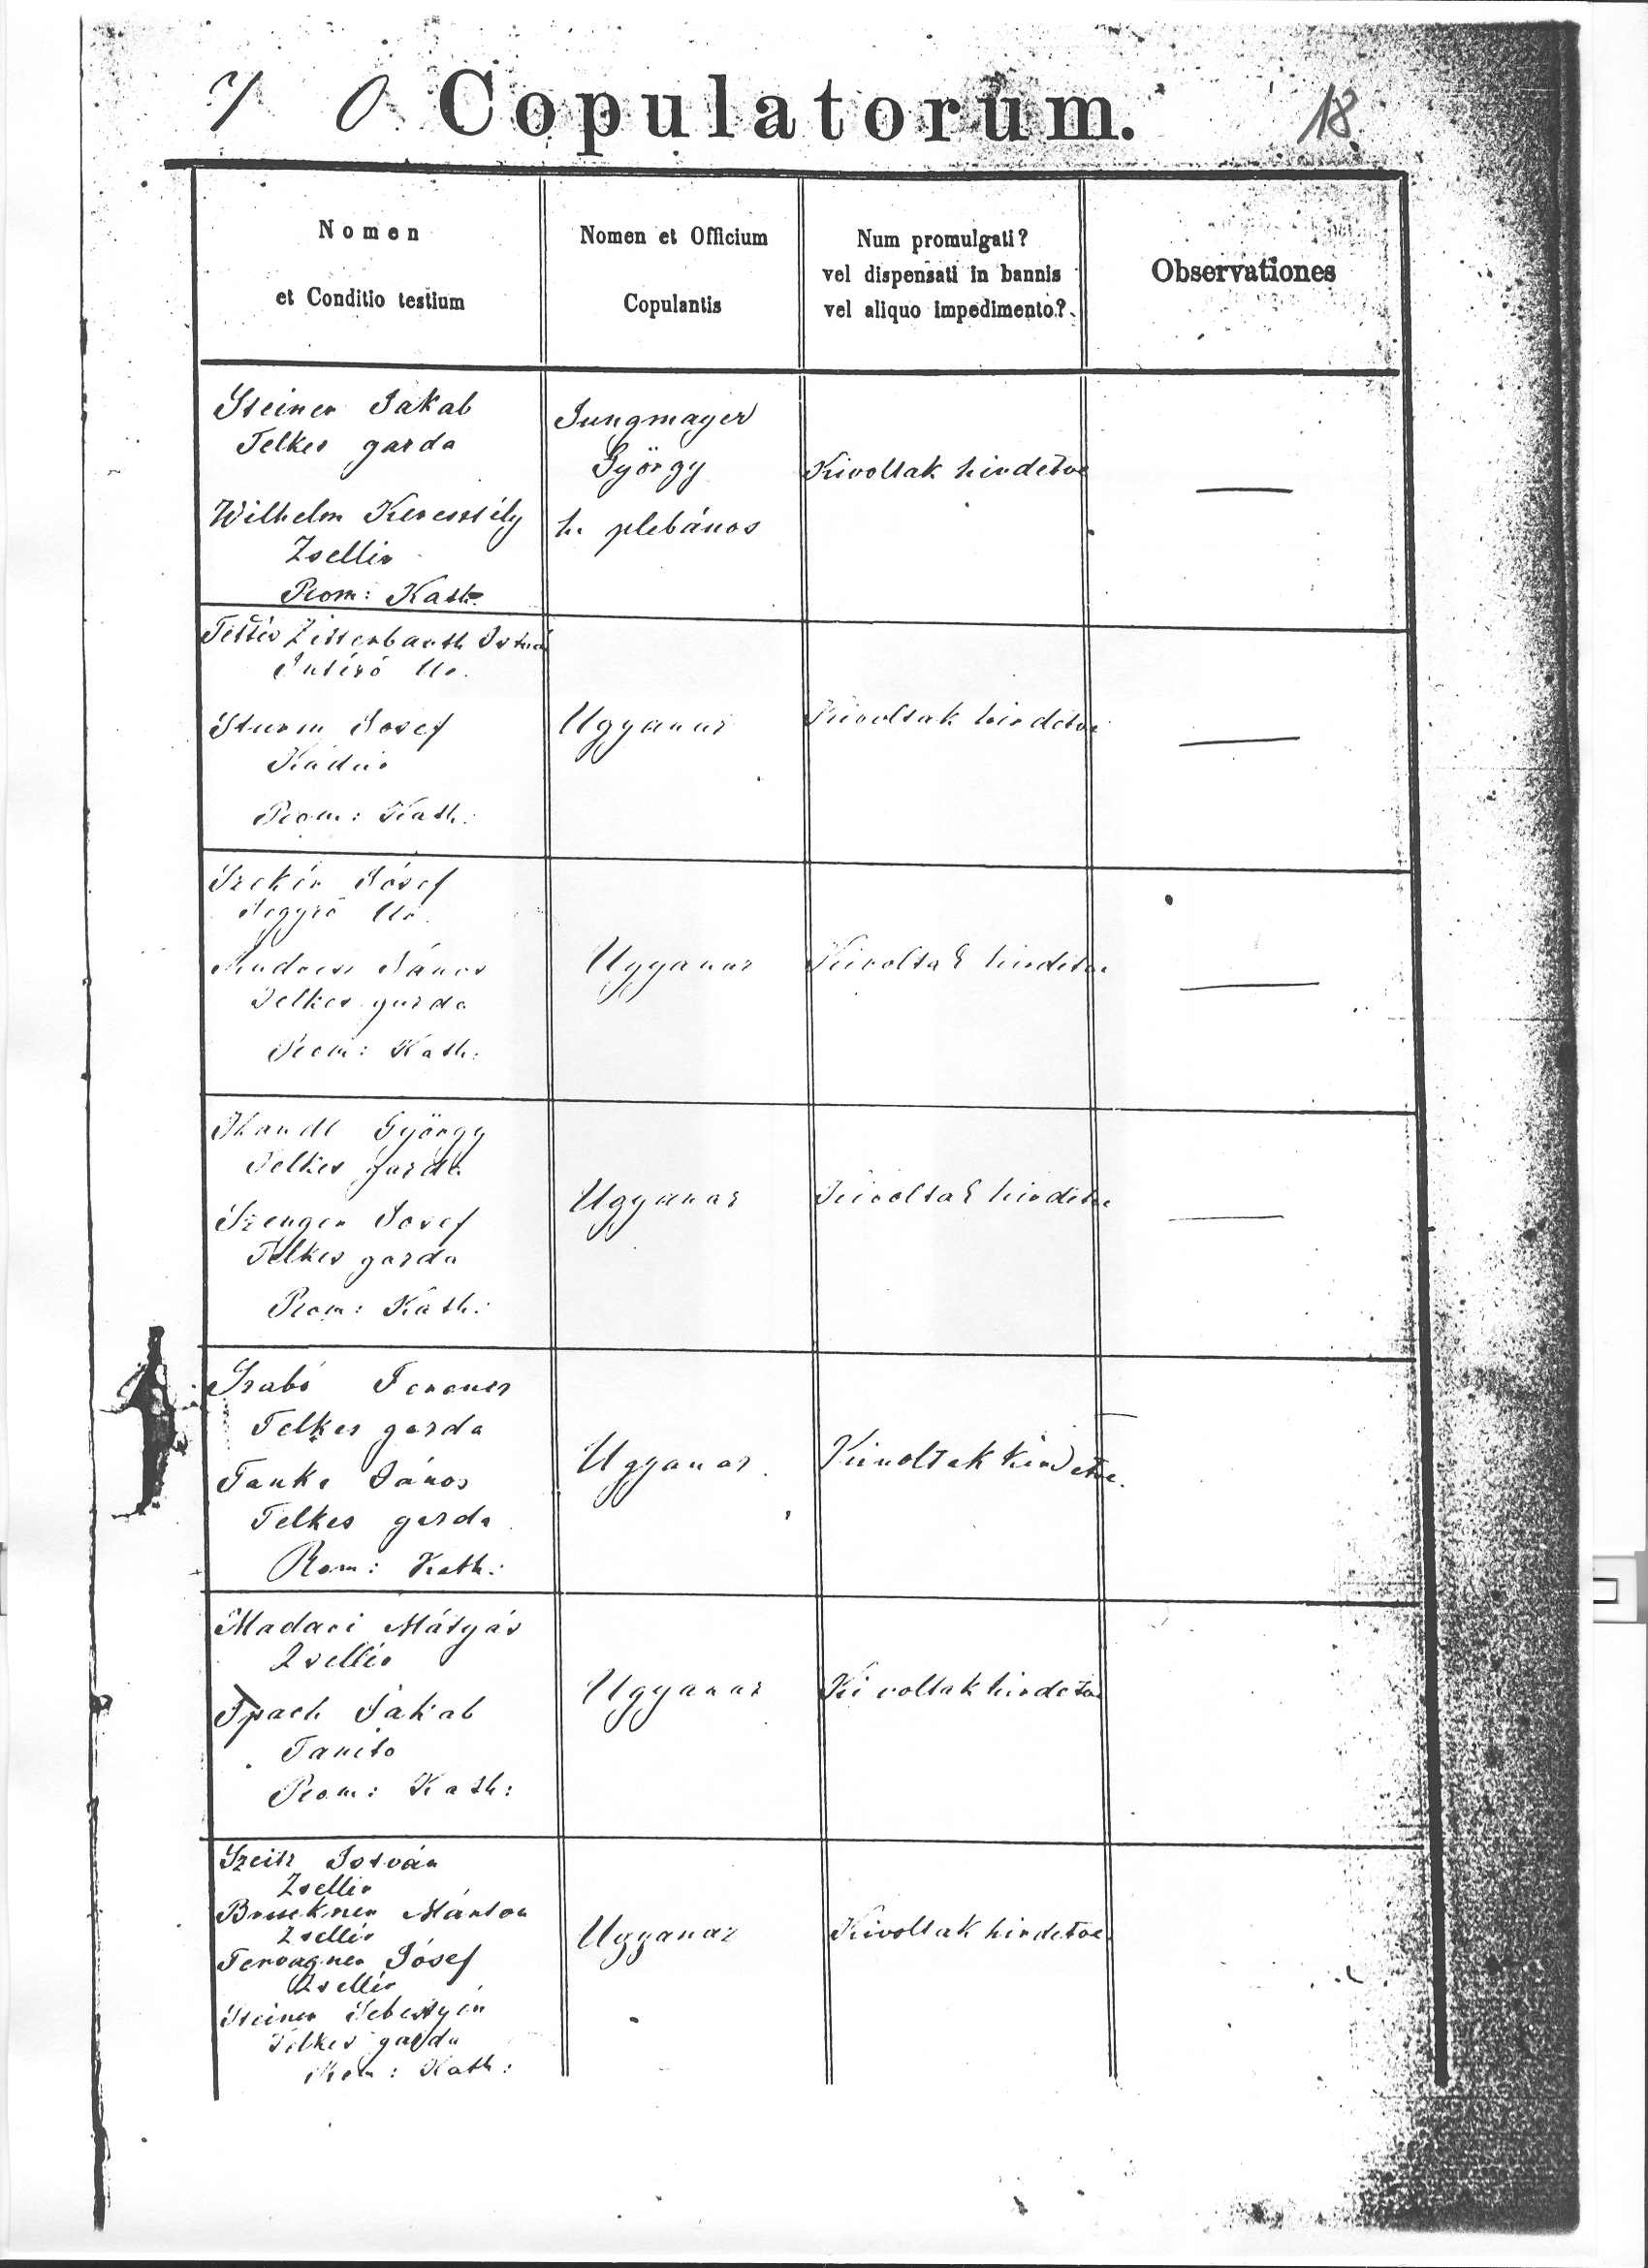 7 0 Copulatorum. 18
Nomen
et Conditio testium
Nomen et Officium
Copulantis
Num promulgati?
vel dispensati in bannis
vel aliquo impedimento?
Observationes
Steiner Jakab
Telkes gazda
Wilhelm Keresztély
Zsellér
Rom: Kath.
Jungmayer
György
h. plebános
Kivoltak hirdetve
Zittenbarth
Sturm Josef
Kádár
Rom: Kath:
Ugyanaz
Kivoltak hirdetve
Szekér Jósef
János
Telkes gazda
Rom: Kath:
Ugyanaz
Kivoltak hirdetve
György
Telkes gazda
Szenger Josef
Telkes gazda
Rom: Kath:
Ugyanaz
Kivoltak hirdetve
Szabó Ferencz
Telkes gazda
János
Telkes gazda
Rom: Kath:
Ugyanaz
Kivoltak hirdetve.
Madari Mátyás
Zsellér
Jakab
Tanito
Rom: Kath:
Ugyanaz
Ki voltak hirdetve
Szeitz István
Zsellér
Bruckner Márton
Zsellér
Jósef
Zsellér
Steiner Sebestyén
Telkes gazda
Rom: Kath:
Ugyanaz
Kivoltak hirdetve